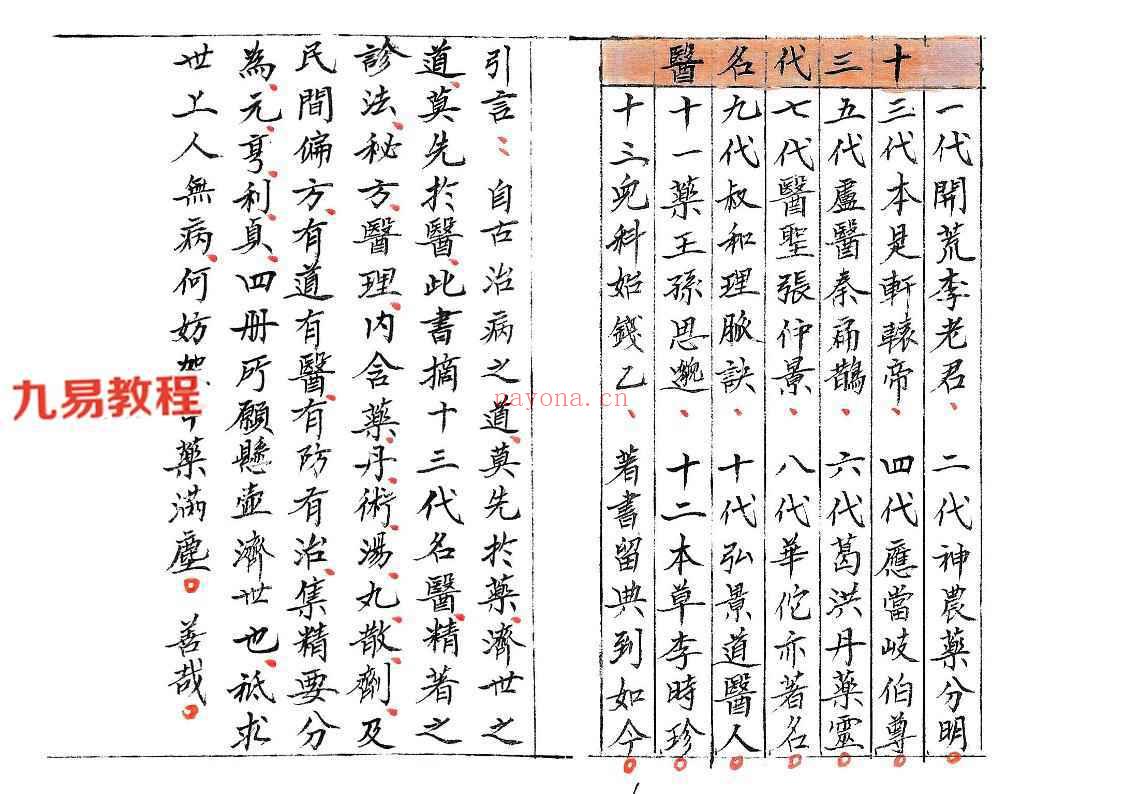 十三代名醫
一代開荒李老君、二代神農藥分明。
三代本是軒轅帝、四代應當岐伯尊。
五代盧醫秦扁鵲、六代葛洪丹藥靈。
七代醫聖張仲景、八代華佗亦著名。
九代叔和理脈訣、十代弘景道醫人。
十一藥王孫思邈、十二本草李時珍。
十三兒科始錢乙、著書留典到如今。
引言：自古治病之道、莫先於藥、濟世之
道、莫先於醫、此書摘十三代名醫、精著之
診法、秘方、醫理、内含藥、丹、術、湯、丸、散、劑、及
民間偏方、有道有醫、有防有治、集精要分
為、元、亨、利、貞、四册所願懸壺濟世也、祗求
世上人無病、何妨架 藥滿塵。善哉。
九易教程
nayona.cn